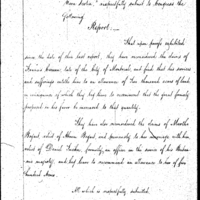 respectfully submit to Congress the
following
Report.
That upon proofs exhibited
since the date of their last report, they have considered the claim of
Francis Cazeau late of the City of Montreal, and find that his services
and sufferings entitle him to an allowance of two thousand acres of land
in consequence of which they beg leave to recommend that the grant formerly
proposed in his favor be increased to that quantity.
They have also considered the claims of Martha
Bogart, relict of Abram Bogart, and previously to her marriage with him
relict of Daniel Tucker formerly, an officer in the service of his
majesty; and they beg leave to recommend an allowance to her of five
hundred Acres.
All which is respectfully submitted.